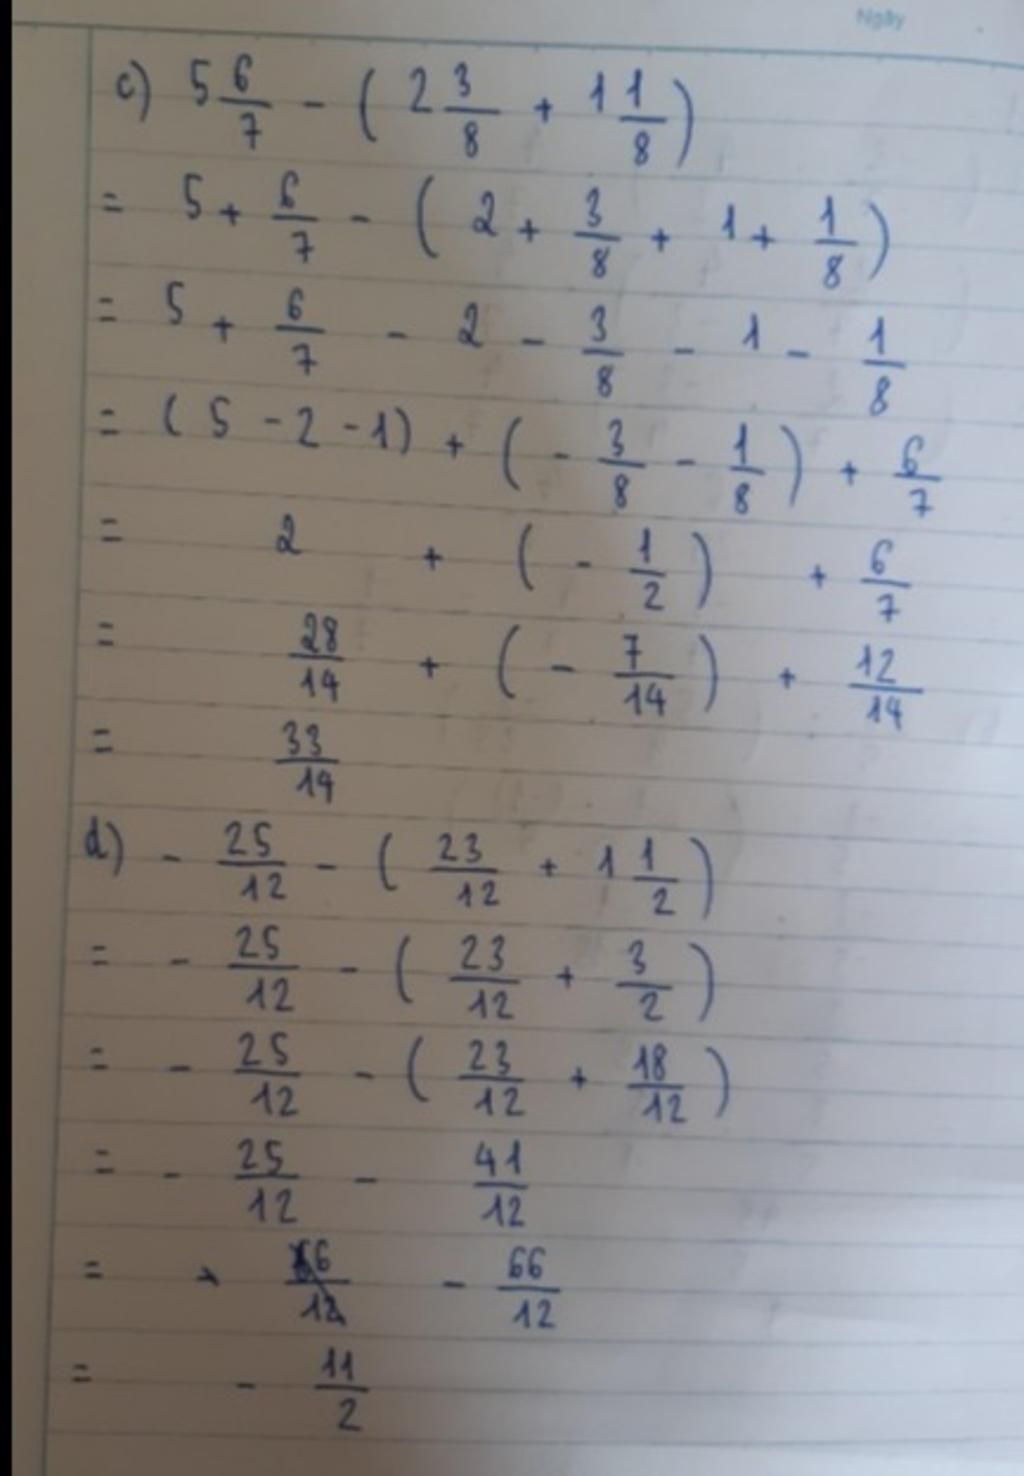 Ngày
c) 5 6/7 - ( 2 3/8 + 1 1/8 )
= 5 + 6/7 - ( 2 + 3/8 + 1 + 1/8 )
= 5 + 6/7 - 2 - 3/8 - 1 - 1/8
= ( 5 - 2 - 1 ) + ( - 3/8 - 1/8 ) + 6/7
= 2 + ( - 1/2 ) + 6/7
= 28/14 + ( - 7/14 ) + 12/14
= 33/14
d) - 25/12 - ( 23/12 + 1 1/2 )
= - 25/12 - ( 23/12 + 3/2 )
= - 25/12 - ( 23/12 + 18/12 )
= - 25/12 - 41/12
= - 66/12
= - 11/2